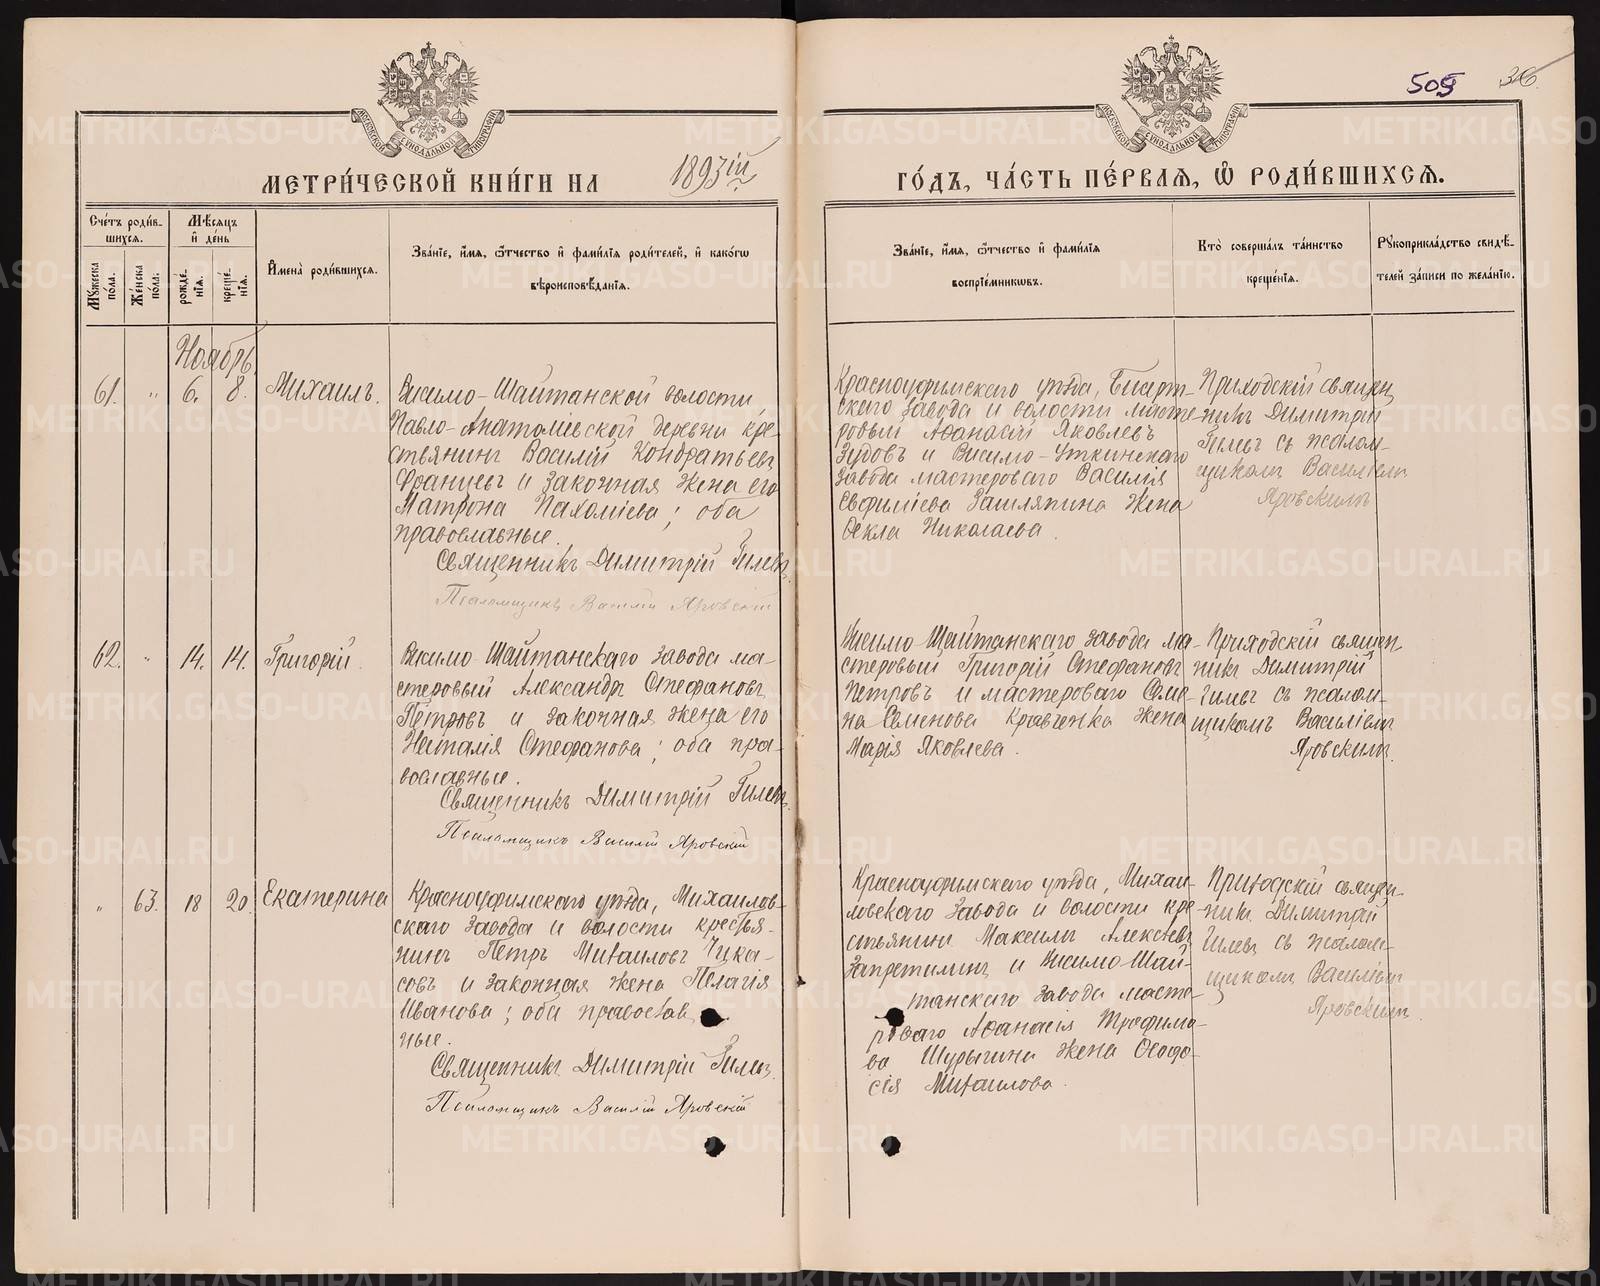 505 36
МОСКОВСКОЙ СѴНОДАЛЬНОЙ ТИПОГРАФІИ
МОСКОВСКОЙ СѴНОДАЛЬНОЙ ТИПОГРАФІИ
МЕТРИ́ЧЕСКОЙ КНИ́ГИ НА 1893ій
ГО́ДЪ, ЧА́СТЬ ПЕ́РВАЯ, Ѿ РОДИ́ВШИХСЯ.
Сче́тъ роди́в-
шихся.
Мѣ́сяцъ
и҆ де́нь
Мꙋ́жеска по́ла.
Же́нска по́ла.
рожде́-
нїя.
креще́-
нїя.
И҆мена̀ роди́вшихся.
Зва́нїе, и҆́мя, ѻ҆́тчество и҆ фами́лїя роди́телей, и҆ како́гѡ
вѣроисповѣ́данїя.
Зва́нїе, и҆́мя, ѻ҆́тчество и҆ фами́лїя
воспрїе́мникѡвъ.
Кто̀ соверша́лъ та́инство
креще́нїя.
Рꙋкоприкла́дство свидѣ́-
телей за́писи по жела́нїю.
Ноябрь.
61. " 6. 8. Михаилъ.
Висимо-Шайтанской волости
Павло-Анатоліевской деревни кре-
стьянинъ Василій Кондратьевъ
Францевъ и законная жена его
Матрона Пахоміева; оба
православные.
Священникъ Димитрій Гилевъ.
Псаломщикъ Василій Яровскій
Красноуфимскаго уѣзда, Бисерт-
скаго завода и волости масте-
ровый Аѳанасій Яковлевъ
Зудовъ и Висимо-Уткинскаго
завода мастероваго Василія
Евфиміева Зашляпина жена
Ѳекла Николаева.
Приходскій священ-
никъ Димитрій
Гилевъ съ псалом-
щикомъ Василіемъ
Яровскимъ
62. " 14. 14. Григорій.
Висимо-Шайтанскаго завода ма-
стеровый Александръ Стефановъ
Петровъ и законная жена его
Наталія Стефанова; оба пра-
вославные.
Священникъ Димитрій Гилевъ.
Псаломщикъ Василій Яровскій
Висимо-Шайтанскаго завода ма-
стеровый Григорій Стефановъ
Петровъ и мастероваго
на Семенова Кравченка жена
Марія Яковлева.
Приходскій священ-
никъ Димитрій
Гилевъ съ псалом-
щикомъ Василіемъ
Яровскимъ.
" 63. 18 20. Екатерина
Красноуфимскаго уѣзда, Михайлов-
скаго завода и волости крестья-
нинъ Петръ Михаиловъ Чика-
совъ и законная жена Пелагія
Иванова; оба православ
ные.
Священникъ Димитрій Гилевъ.
Псаломщикъ Василій Яровскій
Красноуфимскаго уѣзда, Михай-
ловскаго завода и волости кре-
стьянинъ Максимъ Алексѣевъ
Запретилинъ и Висимо-Шай-
танскаго завода масте-
роваго Аѳанасія Трофимо-
ва Шурыгина жена Ѳеодо-
сія Михаилова.
Приходскій священ-
никъ Димитрій
Гилевъ съ псалом-
щикомъ Василіемъ
Яровскимъ.
METRIKI.GASO-URAL.RU